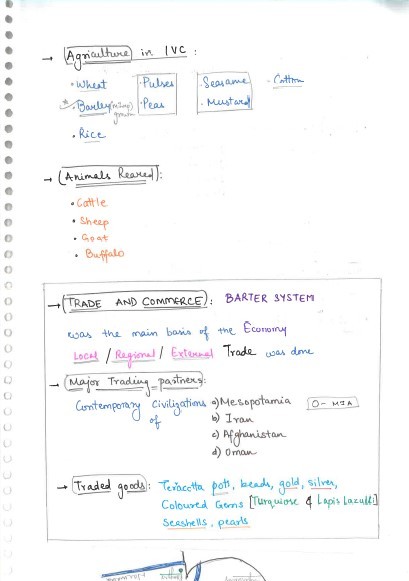 → Agriculture in IVC :
• Wheat • Pulses • Seasame • Cotton
* • Barley • Peas • Mustard
• Rice
→ (Animals Reared) :
• Cattle
• Sheep
• Goat
• Buffalo
→ (TRADE AND COMMERCE) : BARTER SYSTEM
was the main basis of the Economy
Local / Regional / External Trade was done
→ Major Trading partners :
Contemporary Civilizations of a) Mesopotamia O-MIA
b) Iran
c) Afghanistan
d) Oman
→ Traded goods : Teracotta pots, beads, gold, silver,
Coloured Gems [Turquiose & Lapis Laculli]
Seashells, pearls